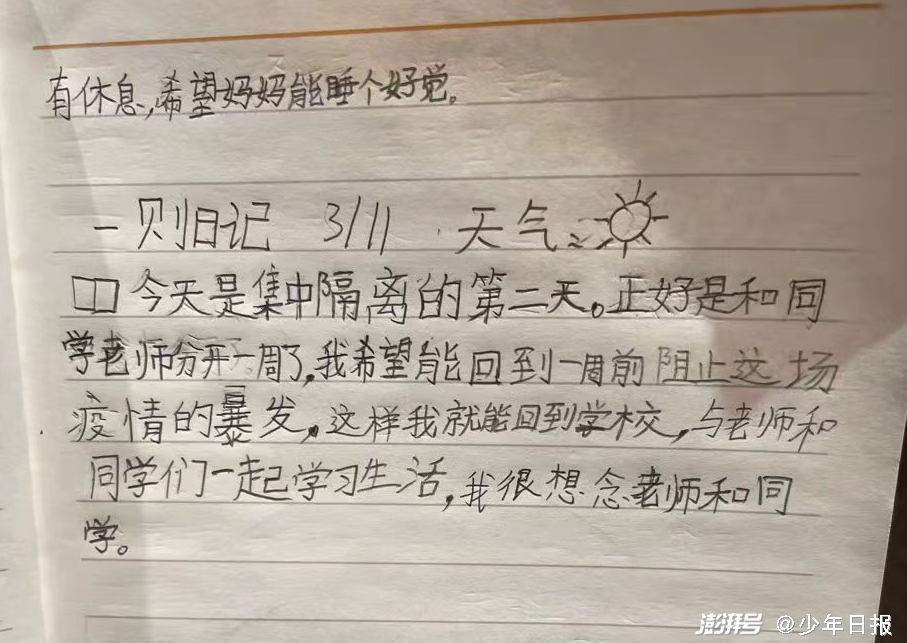 有休息,希望妈妈能睡个好觉。
一则日记 3/11 天气:
今天是集中隔离的第二天。正好是和同
学老师分开一周了,我希望能回到一周前阻止这场
疫情的暴发。这样我就能回到学校,与老师和
同学们一起学习生活,我很想念老师和同
学。
澎湃号 @少年日报